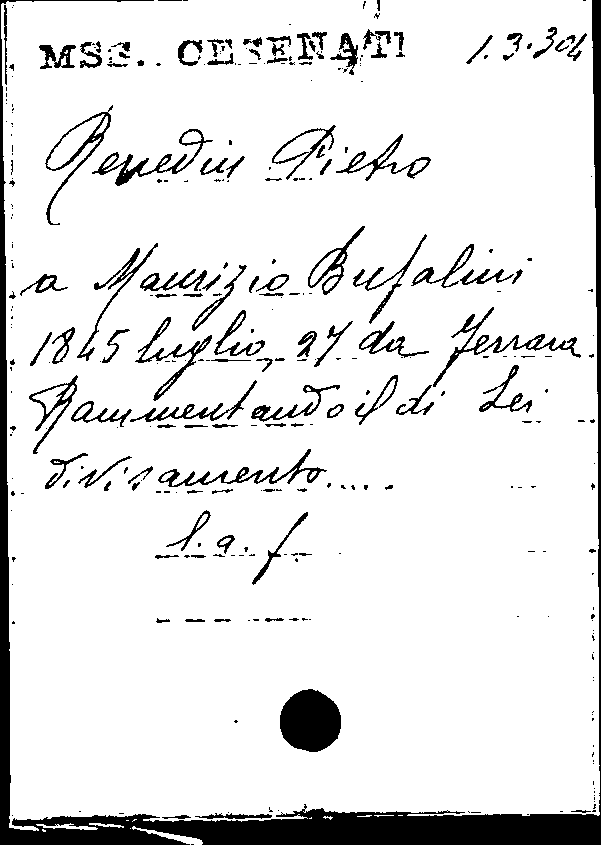 MSS. CESENATI 1.3.304
Renedin Pietro
a Maurizio Bufalini
1845 luglio, 27 da Ferrara
Rammentando il di Lei
divisamento.....
l. a. f.